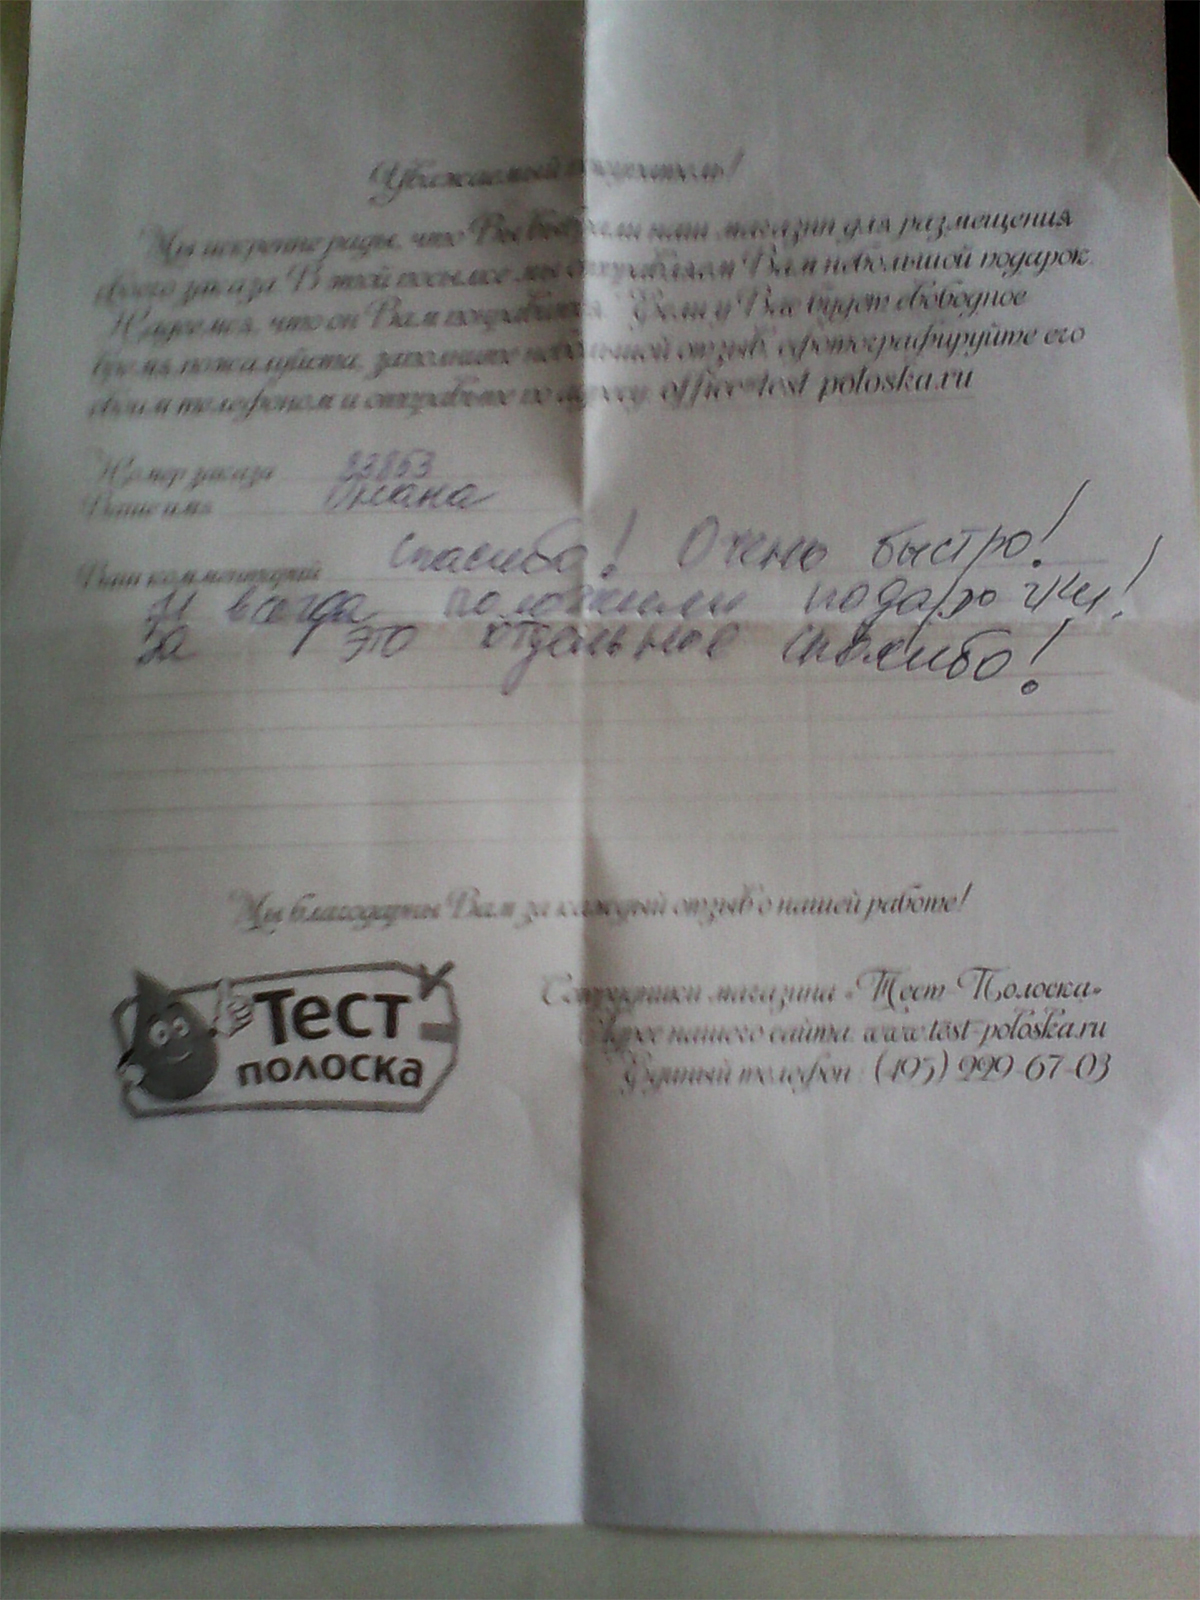 Уважаемый покупатель!
Мы искренне рады, что Вы выбрали наш магазин для размещения
своего заказа. В этой посылке мы отправляем Вам небольшой подарок.
Надеемся, что он Вам понравится. Если у Вас будет свободное
время, пожалуйста, заполните небольшой отзыв, сфотографируйте его
своим телефоном и отправьте по адресу: office@test-poloska.ru
Номер заказа 83853
Ваше имя Оксана
Ваш комментарий Спасибо! Очень быстро!
И всегда положили подарочки!
За это отдельное спасибо!
Мы благодарны Вам за каждый отзыв о нашей работе!
Тест
полоска
Сотрудники магазина «Тест-Полоска»
Адрес нашего сайта: www.test-poloska.ru
Единый телефон: (495) 229-67-03